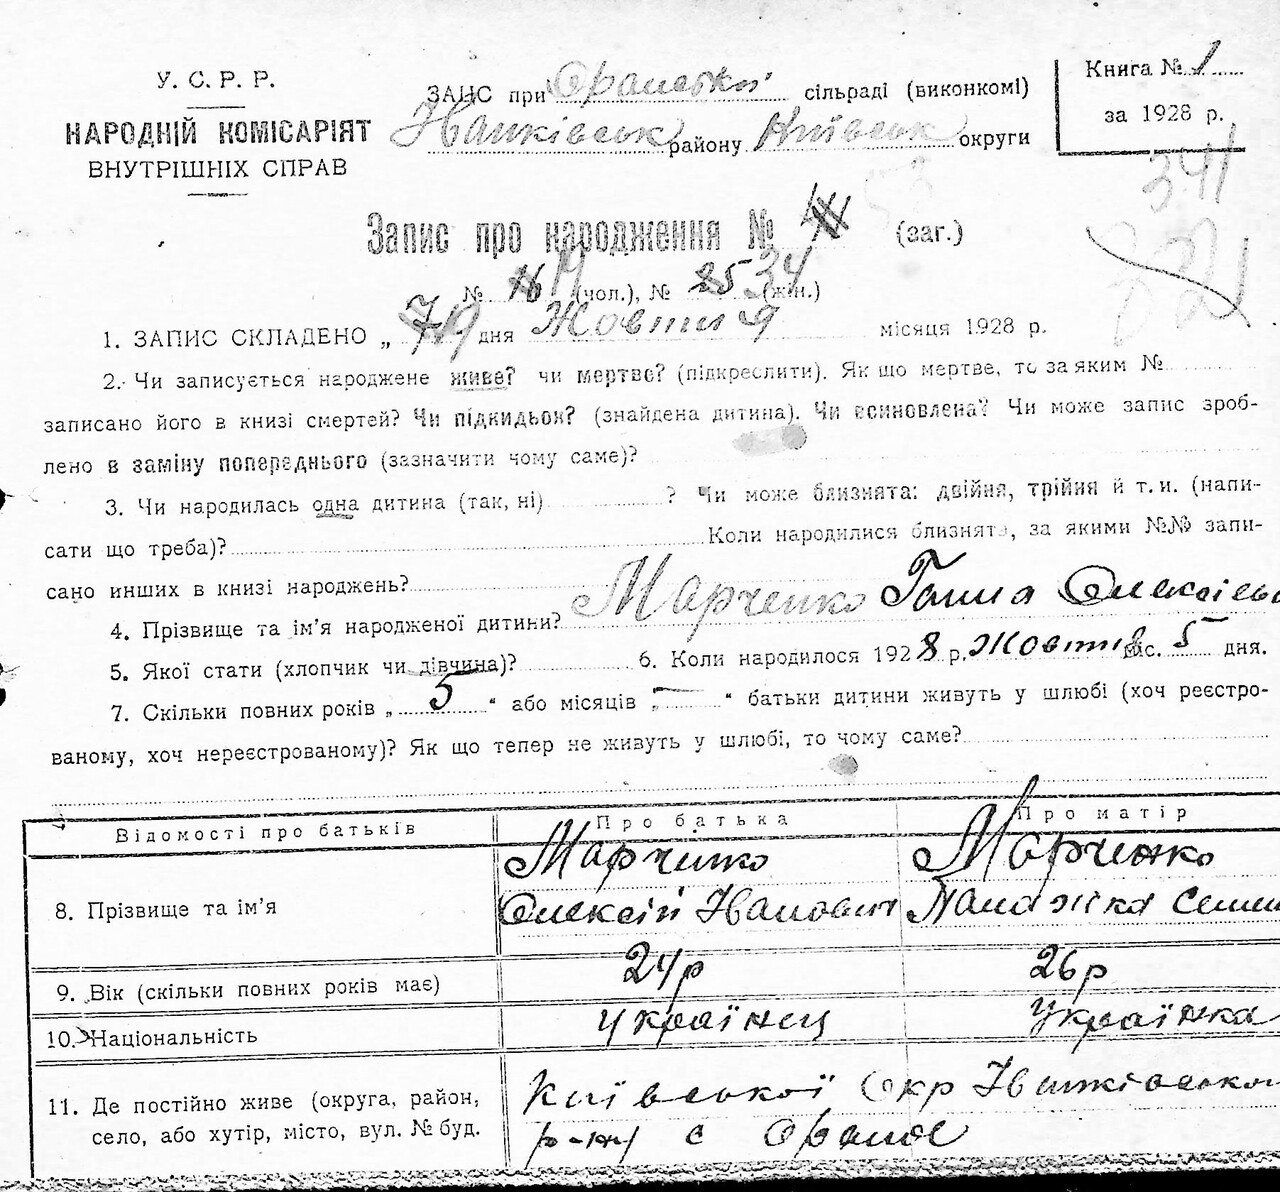 У. С. Р. Р.
НАРОДНІЙ КОМІСАРІЯТ
ВНУТРІШНІХ СПРАВ
ЗАПИС при Оранській сільраді (виконкомі)
Іванківськ району Київськ округи
Книга № 1
за 1928 р.
341
Запис про народження № (заг.)
№ 16 19 (чол.), № 25 34 (жін.)
1. ЗАПИС СКЛАДЕНО „ 7 дня Жовтня місяця 1928 р.
2. Чи записується народжене живе? чи мертве? (підкреслити). Як що мертве, то за яким №
записано його в книзі смертей? Чи підкидьок? (знайдена дитина). Чи всиновлена? Чи може запис зроб-
лено в заміну попереднього (зазначити чому саме)?
3. Чи народилась одна дитина (так, ні) ? Чи може близнята: двійня, трійня й т. и. (напи-
сати що треба)? Коли народилися близнята, за якими №№ запи-
сано инших в книзі народжень?
4. Прізвище та ім'я народженої дитини? Марченко Ганна Олексіев
5. Якої стати (хлопчик чи дівчина)? 6. Коли народилося 1928 р. Жовтня міс. 5 дня.
7. Скільки повних років „ 5 “ або місяців „ — “ батьки дитини живуть у шлюбі (хоч реєстро-
ваному, хоч нереєстрованому)? Як що тепер не живуть у шлюбі, то чому саме?
Відомості про батьків Про батька Про матір
8. Прізвище та ім'я Марченко Марченко
Олексій Іванович Палажка Семен
9. Вік (скільки повних років має) 24р 26р
10. Національність українец українка
11. Де постійно живе (округа, район, Київської Окр Іванківського
село, або хутір, місто, вул. № буд. р-ну с Оране